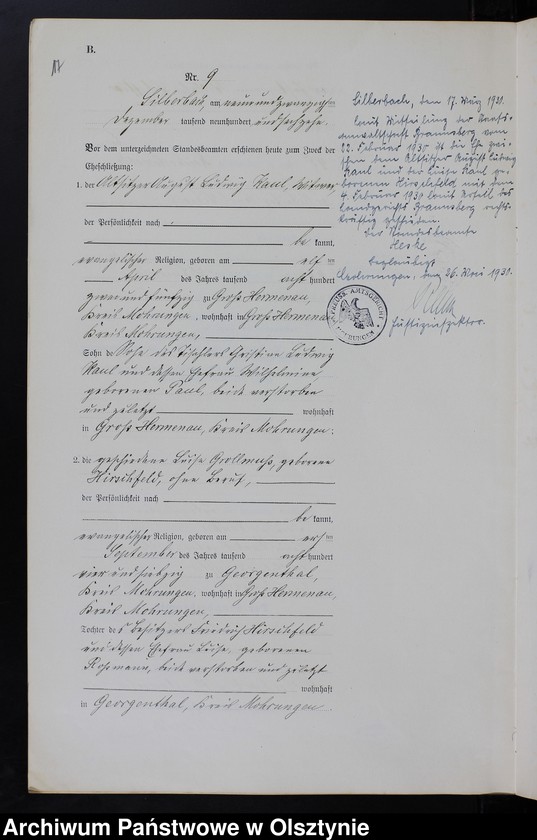 B.
17
Nr. 9
Silberbach, am neunundzwanzigsten
Dezember tausend neunhundert undsechzehn.
Vor dem unterzeichneten Standesbeamten erschienen heute zum Zweck der
Eheschließung:
1. der Altsitzer August Ludwig Kaul, Witwer,
der Persönlichkeit nach
be kannt,
evangelischer Religion, geboren am elf ten
April des Jahres tausend acht hundert
zweiundfünfzig zu Groß Hermenau,
Kreis Mohrungen, wohnhaft in Groß Hermenau,
Kreis Mohrungen,
Sohn des Tischlers Christine Ludwig
Kaul und dessen Ehefrau Wilhelmine
geborenen Paul, beide verstorben
und zuletzt wohnhaft
in Groß Hermenau, Kreis Mohrungen.
2. die geschiedene Luise Grollmuß, geborene
Hirschfeld, ohne Beruf,
der Persönlichkeit nach
be kannt,
evangelischer Religion, geboren am ers ten
September des Jahres tausend acht hundert
vierundsiebzig zu Georgenthal,
Kreis Mohrungen, wohnhaft in Groß Hermenau,
Kreis Mohrungen,
Tochter des Besitzers Friedrich Hirschfeld
und dessen Ehefrau Luise, geborenen
beide verstorben und zuletzt
wohnhaft
in Georgenthal, Kreis Mohrungen.
Silberbach, den 17. März 1931.
Laut Mitteilung der Staats-
anwaltschaft Braunsberg vom
22. Februar 1930 ist die Ehe zwi-
schen dem Altsitzer August Ludwig
Kaul und der Luise Kaul ge-
borenen Hirschfeld mit dem
4. Februar 1930 laut Urteil des
Landgerichts Braunsberg rechts-
kräftig geschieden.
Der Standesbeamte
Beglaubigt
Mohrungen, den 26. Mai 1931.
Justizinspektor.
PREUSS. AMTSGERICHT
MOHRUNGEN
Archiwum Państwowe w Olsztynie